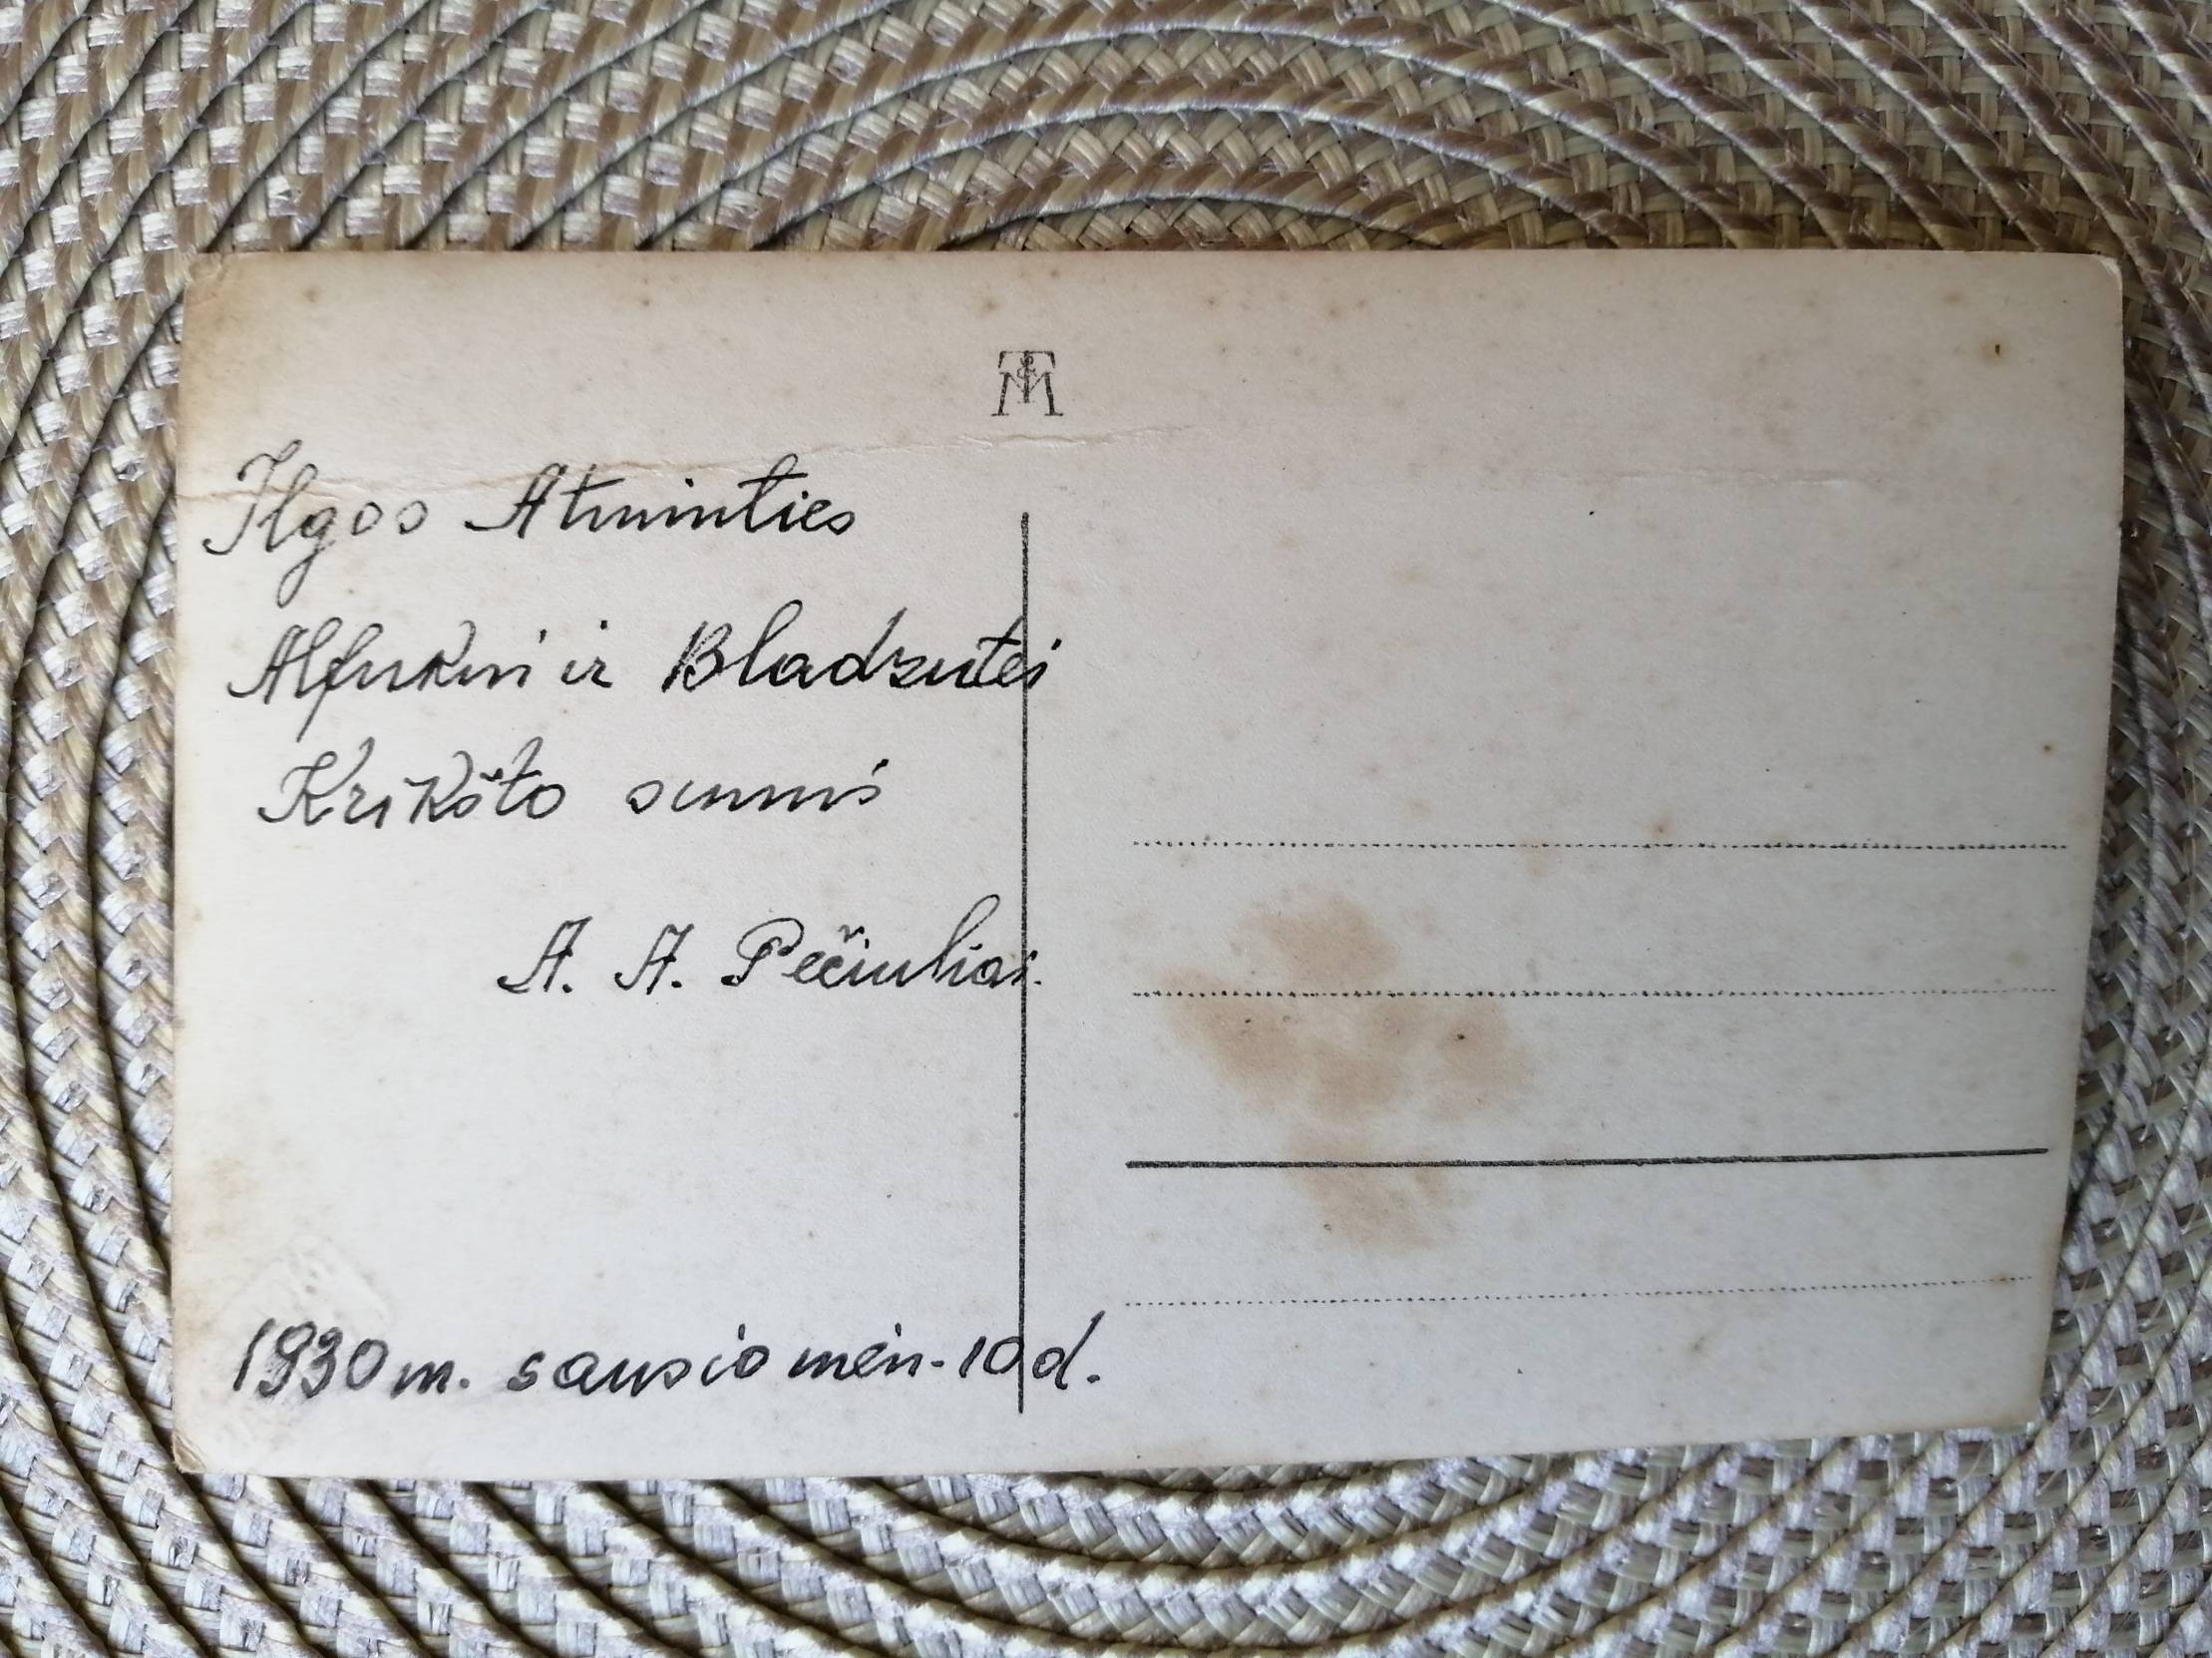 Ilgos Atminties
Alfukui ir Bladzutei
Krikšto sunui
A. A. Pečiuliai.
1930 m. sausio mėn. 10 d.